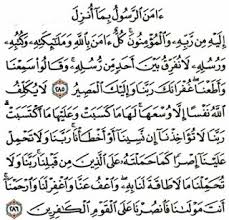 ءَامَنَ الرَّسُولُ بِمَا أُنزِلَ
إِلَيْهِ مِن رَّبِّهِ وَالْمُؤْمِنُونَ ۚ كُلٌّ ءَامَنَ بِاللَّهِ وَمَلَٰئِكَتِهِ وَكُتُبِهِ
وَرُسُلِهِ لَا نُفَرِّقُ بَيْنَ أَحَدٍ مِّن رُّسُلِهِ ۚ وَقَالُوا سَمِعْنَا
وَأَطَعْنَا ۖ غُفْرَانَكَ رَبَّنَا وَإِلَيْكَ الْمَصِيرُ ٢٨٥ لَا يُكَلِّفُ
اللَّهُ نَفْسًا إِلَّا وُسْعَهَا ۚ لَهَا مَا كَسَبَتْ وَعَلَيْهَا مَا اكْتَسَبَتْ ۗ
رَبَّنَا لَا تُؤَاخِذْنَا إِن نَّسِينَا أَوْ أَخْطَأْنَا ۚ رَبَّنَا وَلَا تَحْمِلْ
عَلَيْنَا إِصْرًا كَمَا حَمَلْتَهُ عَلَى الَّذِينَ مِن قَبْلِنَا ۚ رَبَّنَا وَلَا
تُحَمِّلْنَا مَا لَا طَاقَةَ لَنَا بِهِ ۖ وَاعْفُ عَنَّا وَاغْفِرْ لَنَا وَارْحَمْنَا ۚ
أَنتَ مَوْلَانَا فَانصُرْنَا عَلَى الْقَوْمِ الْكَافِرِينَ ٢٨٦